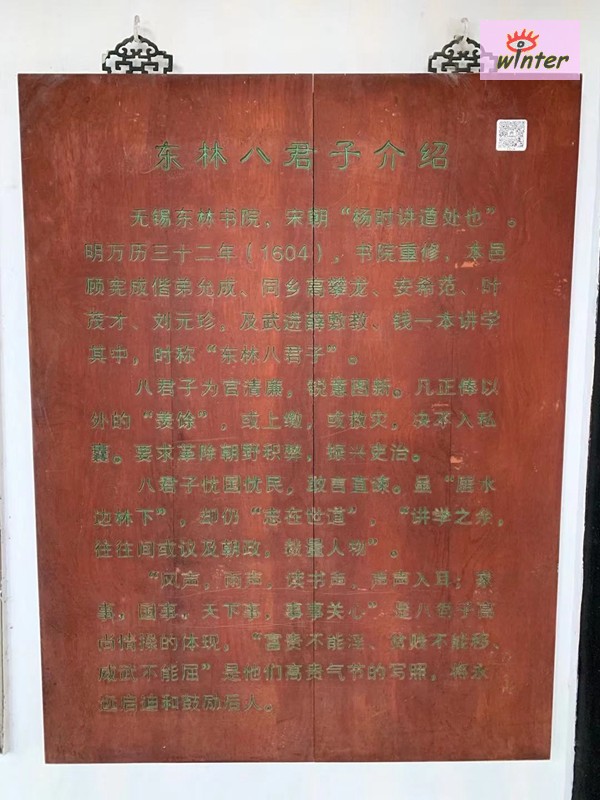 winter
东林八君子介绍
无锡东林书院，宋朝“杨时讲道处也”。
明万历三十二年（1604），书院重修，本邑
顾宪成偕弟允成、同乡高攀龙、安希范、叶
茂才、刘元珍，及武进薛敷教、钱一本讲学
其中，时称“东林八君子”。
八君子为官清廉，锐意图新。凡正俸以
外的“羡馀”，或上缴，或救灾，决不入私
囊。要求革除朝野积弊，振兴吏治。
八君子忧国忧民，敢言直谏。虽“居水
边林下”，却仍“志在世道”，“讲学之余，
往往间或议及朝政，裁量人物”。
“风声，雨声，读书声，声声入耳；家
事，国事，天下事，事事关心”是八君子高
尚情操的体现，“富贵不能淫、贫贱不能移、
威武不能屈”是他们高贵气节的写照，将永
远启迪和鼓励后人。